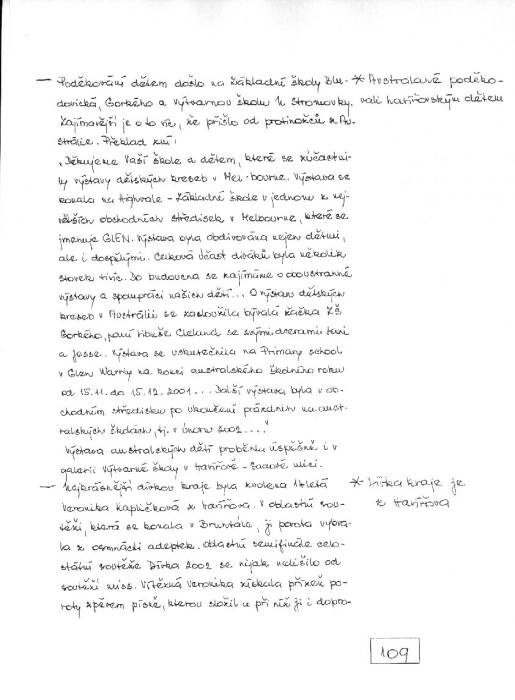 — Poděkování dětem došlo na Základní školy Žlu-
dovická, Gorkého a Výtvarnou školu Na Stromovky,
Zajímavější je o to víc, že přišlo od protinožců z Au-
strálie. Překlad zní:
„Děkujeme Vaší škole a dětem, které se zúčastni-
ly výstavy dětských kreseb v Mel-bourne. Výstava se
konala na Highvale - Základní škole v jednom z nej-
větších obchodních středisek v Melbourne, které se
jmenuje GLEN. Výstava byla obdivována nejen dětmi,
ale i dospělými. Celková účast diváků byla několik
stovek tisíc. Do budoucna se zajímáme o oboustranné
výstavy a spolupráci našich dětí... O výstavu dětských
kreseb v Austrálii se zasloužila bývalá žačka ZŠ
Gorkého, paní Libuše Cleland se svými dcerami
a Jesse. Výstava se uskutečnila na Primary school
v Glen Warrly na konci australského školního roku
od 15.11. do 15.12. 2001... Další výstava byla v ob-
chodním středisku po ukončení prázdnin na aust-
ralských školách, tj. v únoru 2002...."
Výstava australských dětí proběhla úspěšně i v
galerii Výtvarné školy v Havířově - ulici.
— Nejkrásnější dívkou kraje byla zvolena 14letá
Veronika Kapličková z Havířova. V oblastní sou-
těži, která se konala v Bruntále, ji porota vybra-
la z osmnácti adeptek. Oblastní semifinále celo-
státní soutěže Dívka 2002 se nijak nelišilo od
soutěží miss. Vítězná Veronika získala přízeň po-
roty zpěvem písně, kterou složil a při níž ji i dopro-
* Australané poděko-
vali havířovským dětem
* Dívka kraje je
z Havířova
109